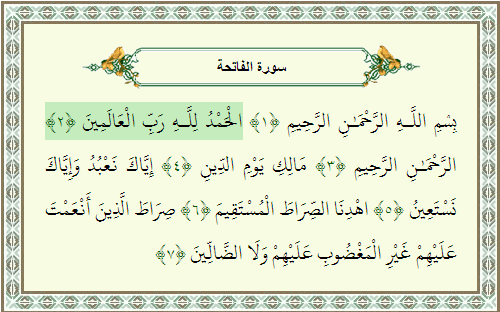 سورة الفاتحة
بِسْمِ اللَّـهِ الرَّحْمَـٰنِ الرَّحِيمِ ﴿١﴾ الْحَمْدُ لِلَّـهِ رَبِّ الْعَالَمِينَ ﴿٢﴾
الرَّحْمَـٰنِ الرَّحِيمِ ﴿٣﴾ مَالِكِ يَوْمِ الدِّينِ ﴿٤﴾ إِيَّاكَ نَعْبُدُ وَإِيَّاكَ
نَسْتَعِينُ ﴿٥﴾ اهْدِنَا الصِّرَاطَ الْمُسْتَقِيمَ ﴿٦﴾ صِرَاطَ الَّذِينَ أَنْعَمْتَ
عَلَيْهِمْ غَيْرِ الْمَغْضُوبِ عَلَيْهِمْ وَلَا الضَّالِّينَ ﴿٧﴾